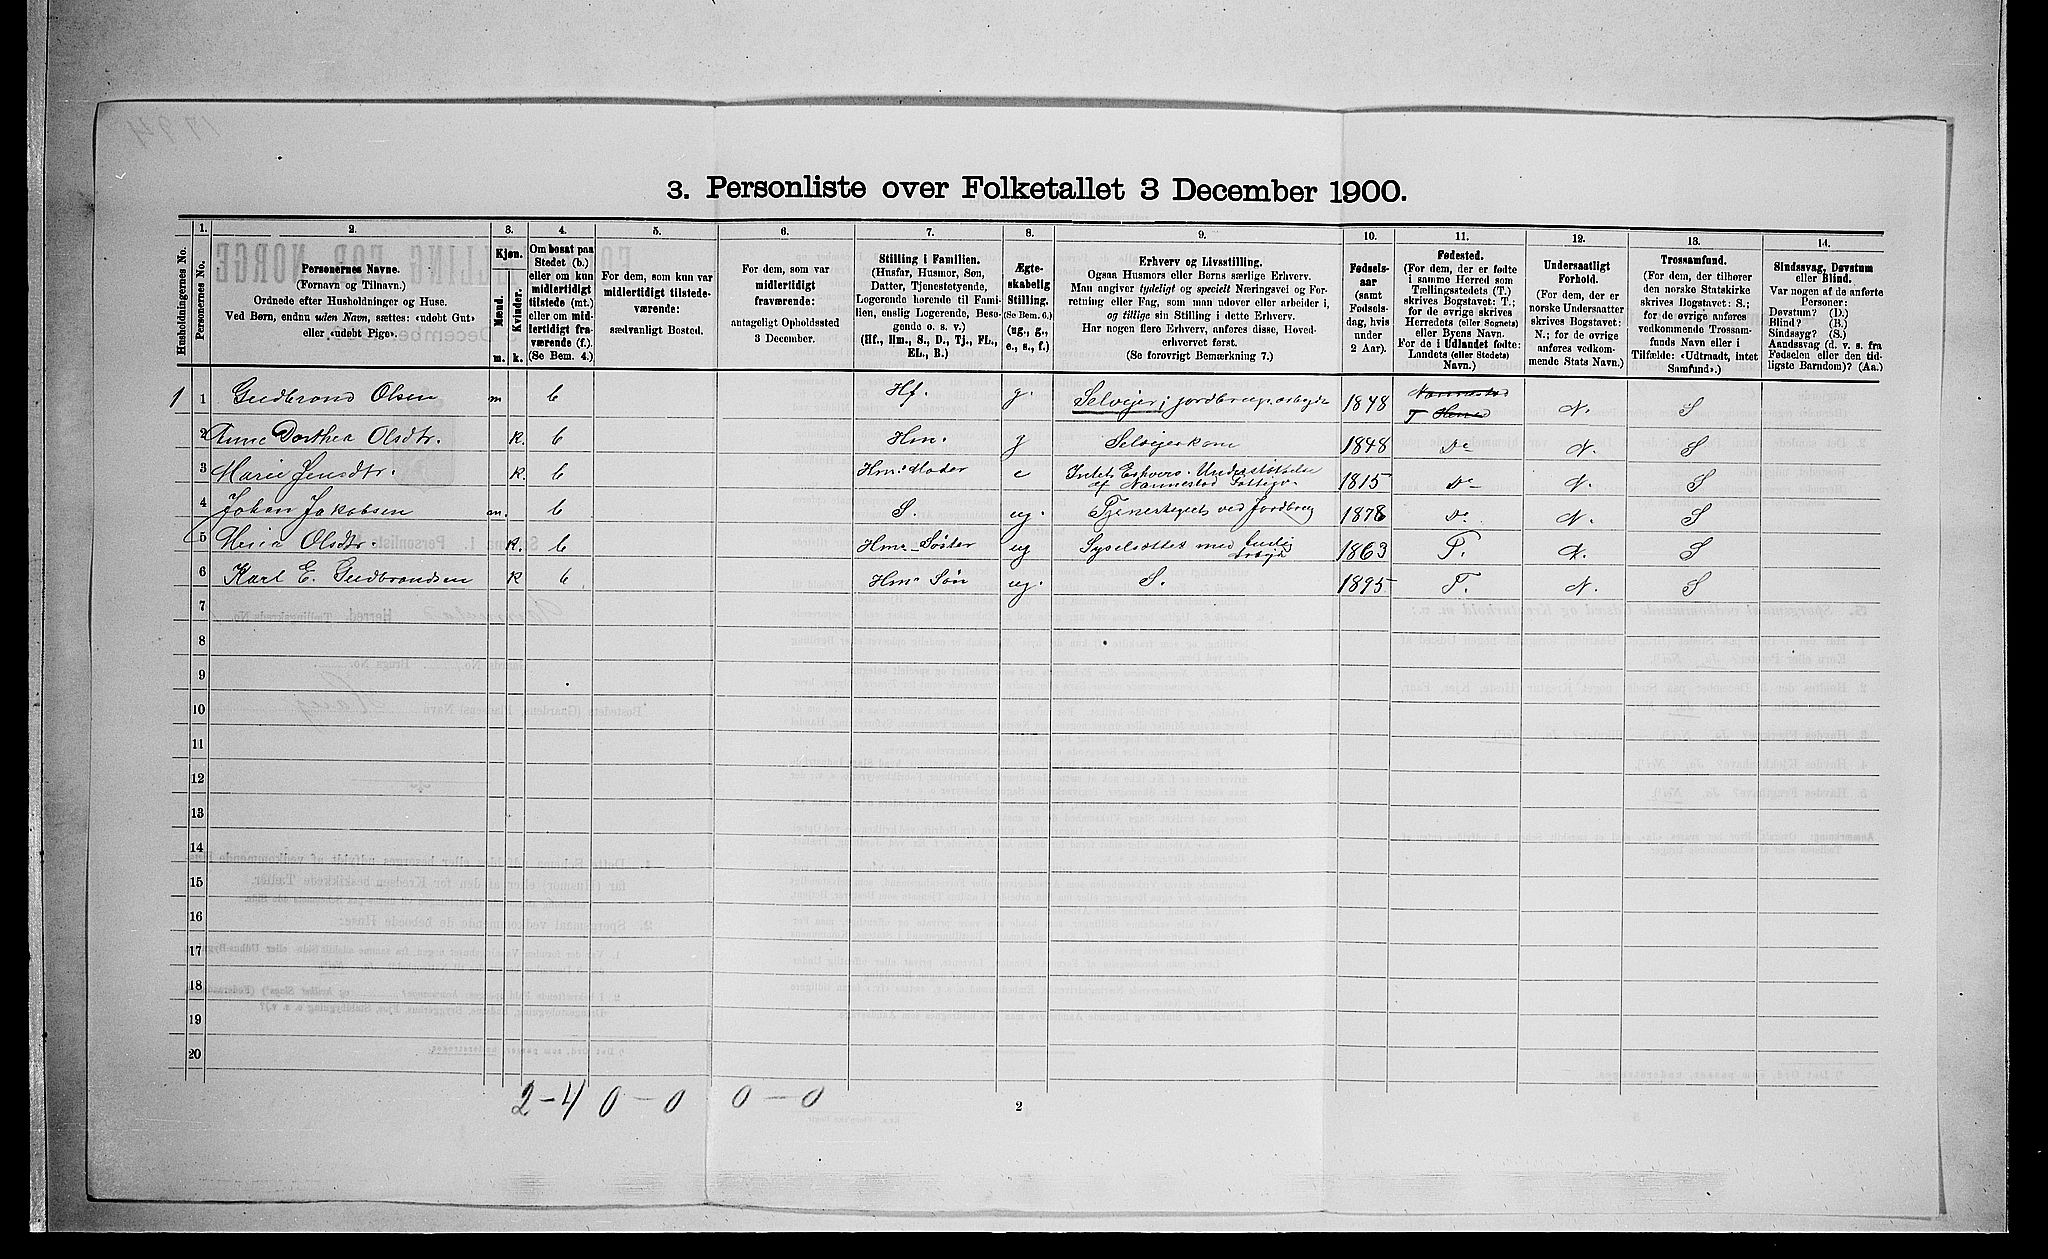 3. Personliste over Folketallet 3 December 1900.
Husholdningernes No.
1.
Personernes No.
2.
Personernes Navne.
(Fornavn og Tilnavn.)
Ordnede efter Husholdninger og Huse.
Ved Børn, endnu uden Navn, sættes: «udøbt Gut»
eller «udøbt Pige».
3.
Kjøn.
Mænd.
Kvinder.
m.
k.
4.
Om bosat paa
Stedet (b.)
eller om kun
midlertidigt
tilstede (mt.)
eller om mid-
lertidigt fra-
værende (f.).
(Se Bem. 4.)
5.
For dem, som kun var
midlertidigt tilstede-
værende:
sædvanligt Bosted.
6.
For dem, som var
midlertidigt
fraværende:
antageligt Opholdssted
3 December.
7.
Stilling i Familien.
(Husfar, Husmor, Søn,
Datter, Tjenestetyende,
Logerende hørende til Fami-
lien, enslig Logerende, Besø-
gende o. s. v.)
(Hf., Hm., S., D., Tj., FL.,
EL., B.)
8.
Ægte-
skabelig
Stilling.
(Se Bem. 6.)
(ug., g.,
e., s., f.)
9.
Erhverv og Livsstilling.
Ogsaa Husmors eller Børns særlige Erhverv.
Man angiver tydeligt og specielt Næringsvei og For-
retning eller Fag, som man udover eller arbeider i,
og tillige sin Stilling i dette Erhverv.
Har nogen flere Erhverv, anføres disse, Hoved-
erhvervet først.
(Se forøvrigt Bemærkning 7.)
10.
Fødsels-
aar
(samt
Fødsels-
dag, hvis
under
2 Aar).
11.
Fødested.
(For dem, der er fødte
i samme Herred som
Tællingsstedets (T.)
skrives Bogstavet: T.;
for de øvrige skrives
Herredets (eller Sognets)
eller Byens Navn.
For de i Udlandet fødte:
Landets (eller Stedets)
Navn.)
12.
Undersaatligt
Forhold.
(For dem, der er
norske Undersaatter
skrives Bogstavet:
N.; for de øvrige
anføres vedkom-
mende Stats Navn.)
13.
Trossamfund.
(For dem, der tilhører
den norske Statskirke
skrives Bogstavet: S.;
for de øvrige anføres
vedkommende Trossam-
funds Navn eller i
Tilfælde: «Udtraadt, intet
Samfund».)
14.
Sindssvag, Døvstum
eller Blind.
Var nogen af de anførte
Personer:
Døvstum? (D.)
Blind? (B.)
Sindssyg? (S.)
Aandssvag (d. v. s. fra
Fødselen eller den tid-
ligste Barndom)? (Aa.)
1 1 Gudbrand Olsen m b Hf. g. Selveier, jordbrug. 1848 Nannestad T Herred N. S
2 Anne Dorthea Olsdtr. k. b Hm. g Selveierkone 1848 Do N. S
3 Marie Jensdtr. k. b Hms Moder e Intet Erhverv. Understøttelse af Nannestad Fattigv. 1815 Do N. S
4 Johan Jakobsen m. b S. ug. Tjenestegut ved Jordbrug 1878 Do N. S
5 Olsdtr. k. b Hms Søster ug Sysselsættes med 1863 T. N. S
6 Karl E. Gudbrandsen k b Hms Søn ug. S. 1895 T. N. S
7
8
9
10
11
12
13
14
15
16
17
18
19
20
2 – 4 0 – 0 0 – 0
2